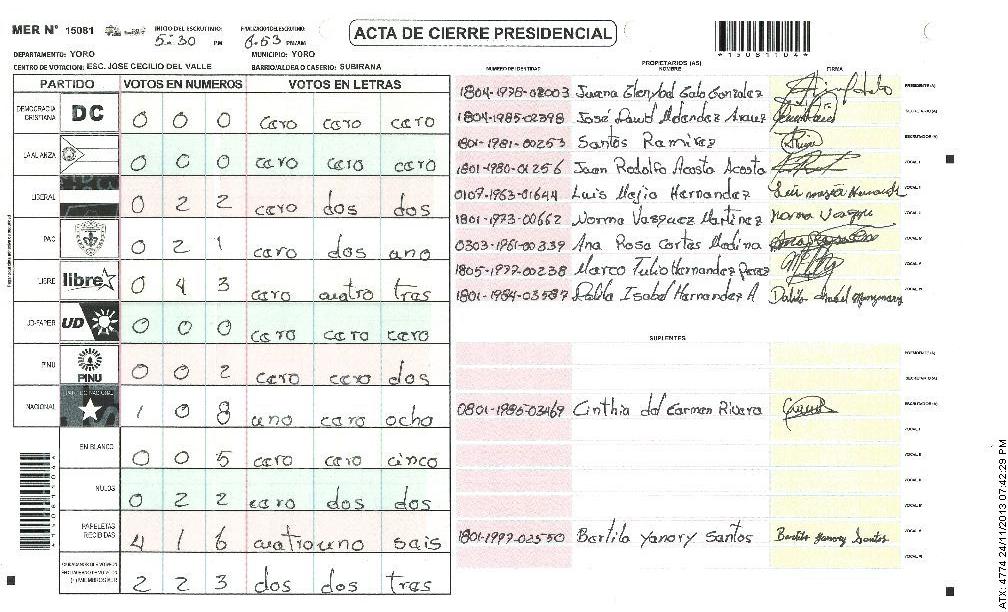 MER Nº 15081
INICIO DEL ESCRUTINIO: 5:30 PM
FINALIZACION DEL ESCRUTINIO: 6:53 PM/AM
ACTA DE CIERRE PRESIDENCIAL
*15081104*
DEPARTAMENTO: YORO
MUNICIPIO: YORO
CENTRO DE VOTACION: ESC. JOSE CECILIO DEL VALLE
BARRIO/ALDEA O CASERIO: SUBIRANA
PARTIDO VOTOS EN NUMEROS VOTOS EN LETRAS
DEMOCRACIA CRISTIANA DC 0 0 0 cero cero cero
LA ALIANZA 0 0 0 cero cero cero
LIBERAL 0 2 2 cero dos dos
PAC 0 2 1 cero dos uno
LIBRE libre 0 4 3 cero cuatro tres
UD-FAPER UD 0 0 0 cero cero cero
PINU PINU 0 0 2 cero cero dos
NACIONAL 1 0 8 uno cero ocho
EN BLANCO 0 0 5 cero cero cinco
NULOS 0 2 2 cero dos dos
PAPELETAS RECIBIDAS 4 1 6 cuatro uno seis
2 2 3 dos dos tres
PROPIETARIOS (AS)
NUMERO DE IDENTIDAD NOMBRE FIRMA
1804-1978-02003 Juana Gato Gonzalez PRESIDENTE(A)
1804-1985-02398 José David SECRETARIO(A)
1801-1981-00253 Santos Ramirez ESCRUTADOR(A)
1801-1980-01256 Juan Rodolfo Acosta Acosta VOCAL I
0107-1963-01644 Luis Mejia Hernandez
1801-1973-00662 Norma Vasquez Martinez
0303-1961-00339 Ana Rosa Cortes Medina
1805-1977-00238 Marco Tulio Hernandez Perez
1801-1984-03587 Dalila Isabel Hernandez A
SUPLENTES
PRESIDENTE(A)
SECRETARIO(A)
0801-1985-03469 Cinthia del Carmen Rivera ESCRUTADOR(A)
1801-1997-02550 Bertila Yanory Santos Bertila Yanory Santos
ATX: 4774 24/11/2013 07:42:29 PM